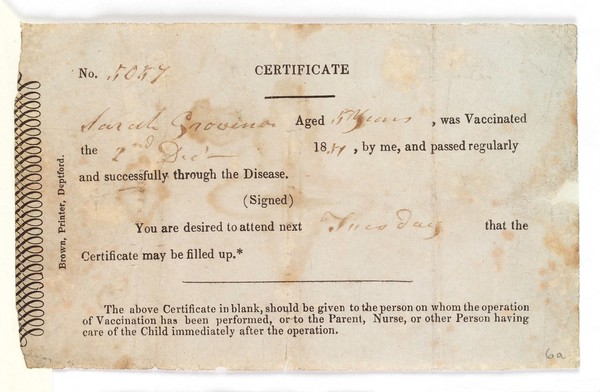 No. 5057 CERTIFICATE
Sarah Aged 5 Years, was Vaccinated
the 2nd Dec 185, by me, and passed regularly
and successfully through the Disease.
(Signed)
You are desired to attend next Tuesday that the
Certificate may be filled up.*
The above Certificate in blank, should be given to the person on whom the operation
of Vaccination has been performed, or to the Parent, Nurse, or other Person having
care of the Child immediately after the operation.
Brown, Printer, Deptford.
6a